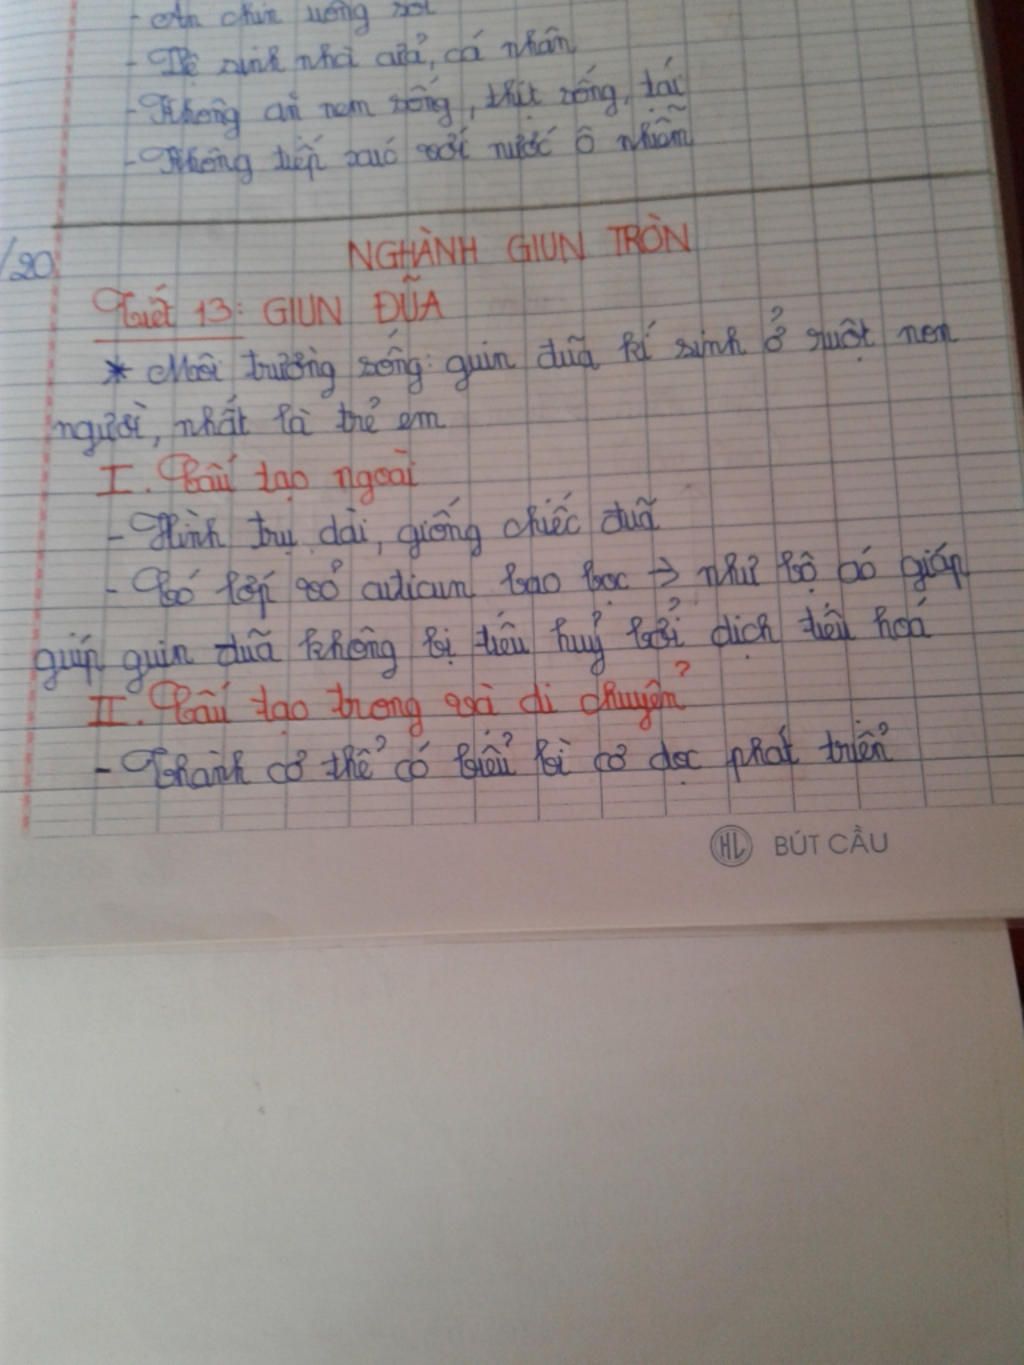 - Ăn chín uống sôi
- Vệ sinh nhà cửa, cá nhân
- Không ăn nem sống, thịt sống, tái
- Không tiếp xúc với nước ô nhiễm
/20
NGHÀNH GIUN TRÒN
Tiết 13: GIUN ĐŨA
* Môi trường sống: guin đũa kí sinh ở ruột non
người, nhất là trẻ em
I. Cấu tạo ngoài
- Hình trụ dài, giống chiếc đũa
- Có lớp vỏ cuticun bao bọc → như bộ áo giáp
giúp guin đũa không bị tiêu huỷ bởi dịch tiêu hoá
II. Cấu tạo trong và di chuyển
- Thành cơ thể có biểu bì cơ dọc phát triển
HL BÚT CẦU